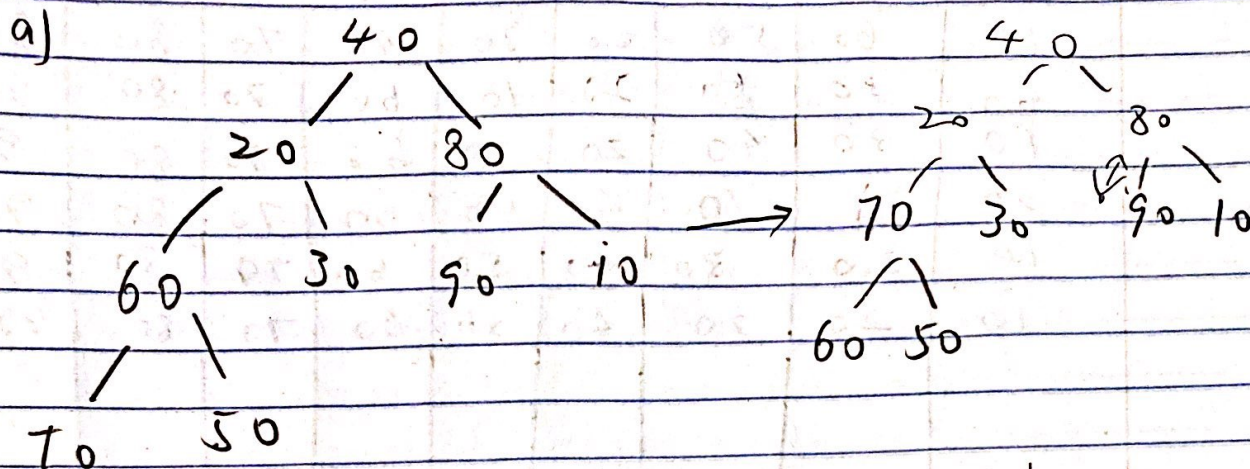 a)
40
20 80
60 30 90 10
70 50
40
20 80
70 30 90 10
60 50